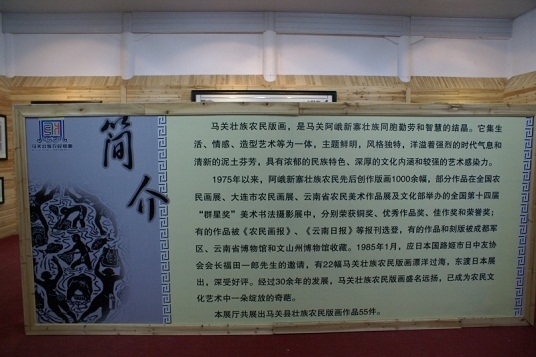 马关壮族农民版画
简介
马关壮族农民版画，是马关阿峨新寨壮族同胞勤劳和智慧的结晶。它集生
活、情感、造型艺术等为一体，主题鲜明，风格独特，洋溢着强烈的时代气息和
清新的泥土芬芳，具有浓郁的民族特色、深厚的文化内涵和较强的艺术感染力。
1975年以来，阿峨新寨壮族农民先后创作版画1000余幅，部分作品在全国农
民画展、大连市农民画展、云南省农民美术作品展及文化部举办的全国第十四届
“群星奖”美术书法摄影展中，分别荣获铜奖、优秀作品奖、佳作奖和荣誉奖；
有的作品被《农民画报》、《云南日报》等报刊选登，有的作品和刻版被成都军
区、云南省博物馆和文山州博物馆收藏。1985年1月，应日本国路姬市日中友协
会会长福田一郎先生的邀请，有22幅马关壮族农民版画漂洋过海，东渡日本展
出，深受好评。经过30余年的发展，马关壮族农民版画盛名远扬，已成为农民文
化艺术中一朵绽放的奇葩。
本展厅共展出马关县壮族农民版画作品55件。